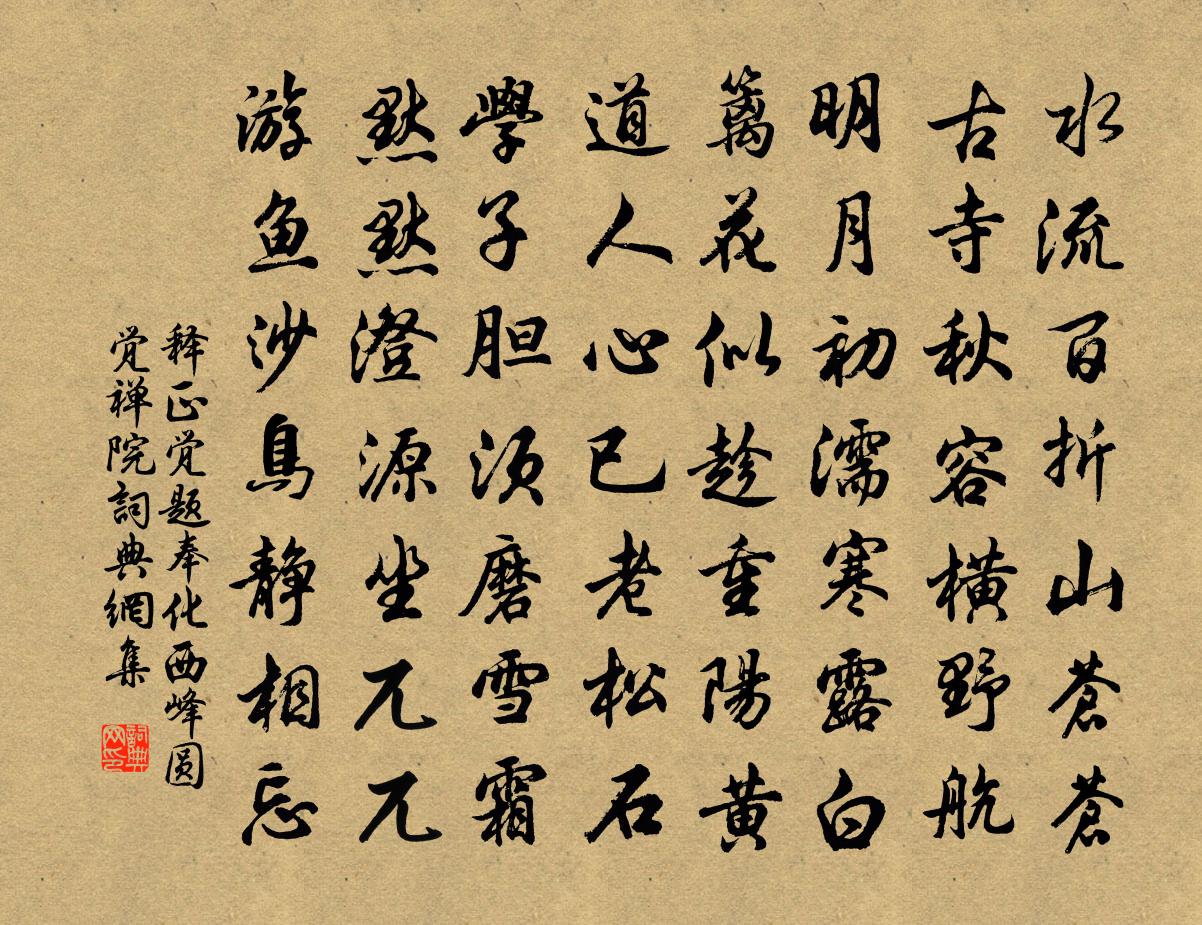 水流百折山蒼蒼
古寺秋容橫野航
明月初濡寒露白
籬花似趁重陽黄
道人心已老松石
學子胆须磨雪霜
默默澄源坐兀兀
游鱼沙鳥静相忘
释正觉题奉化西峰圆
觉禅院詞典網集
詞典网印